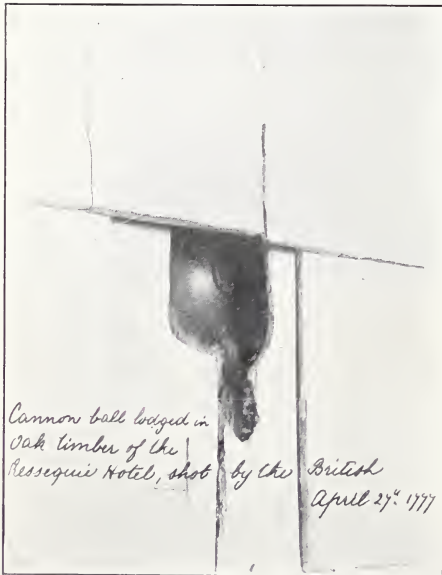 Cannon ball lodged in
Oak timber of the
Resseguie Hotel, shot by the British
April 27th 1777